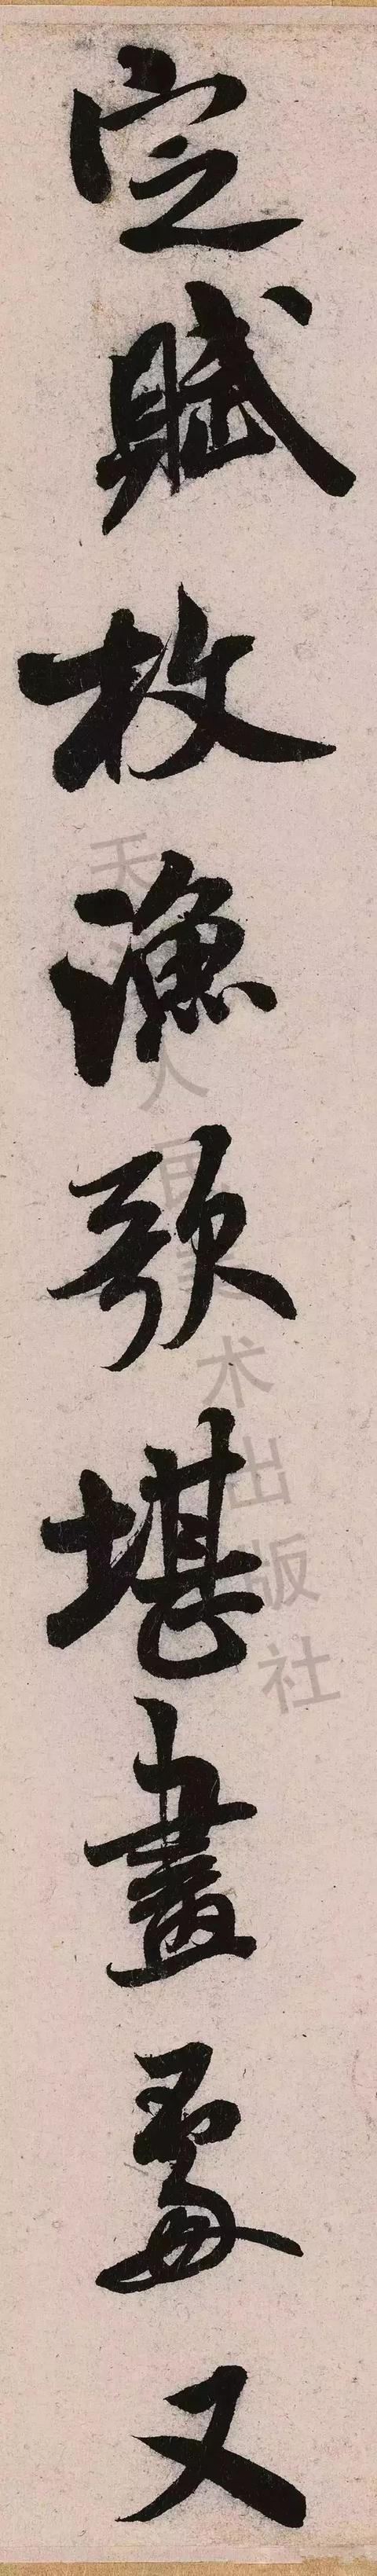 定賦枚漁歌堪畫處又
天津人民美术出版社